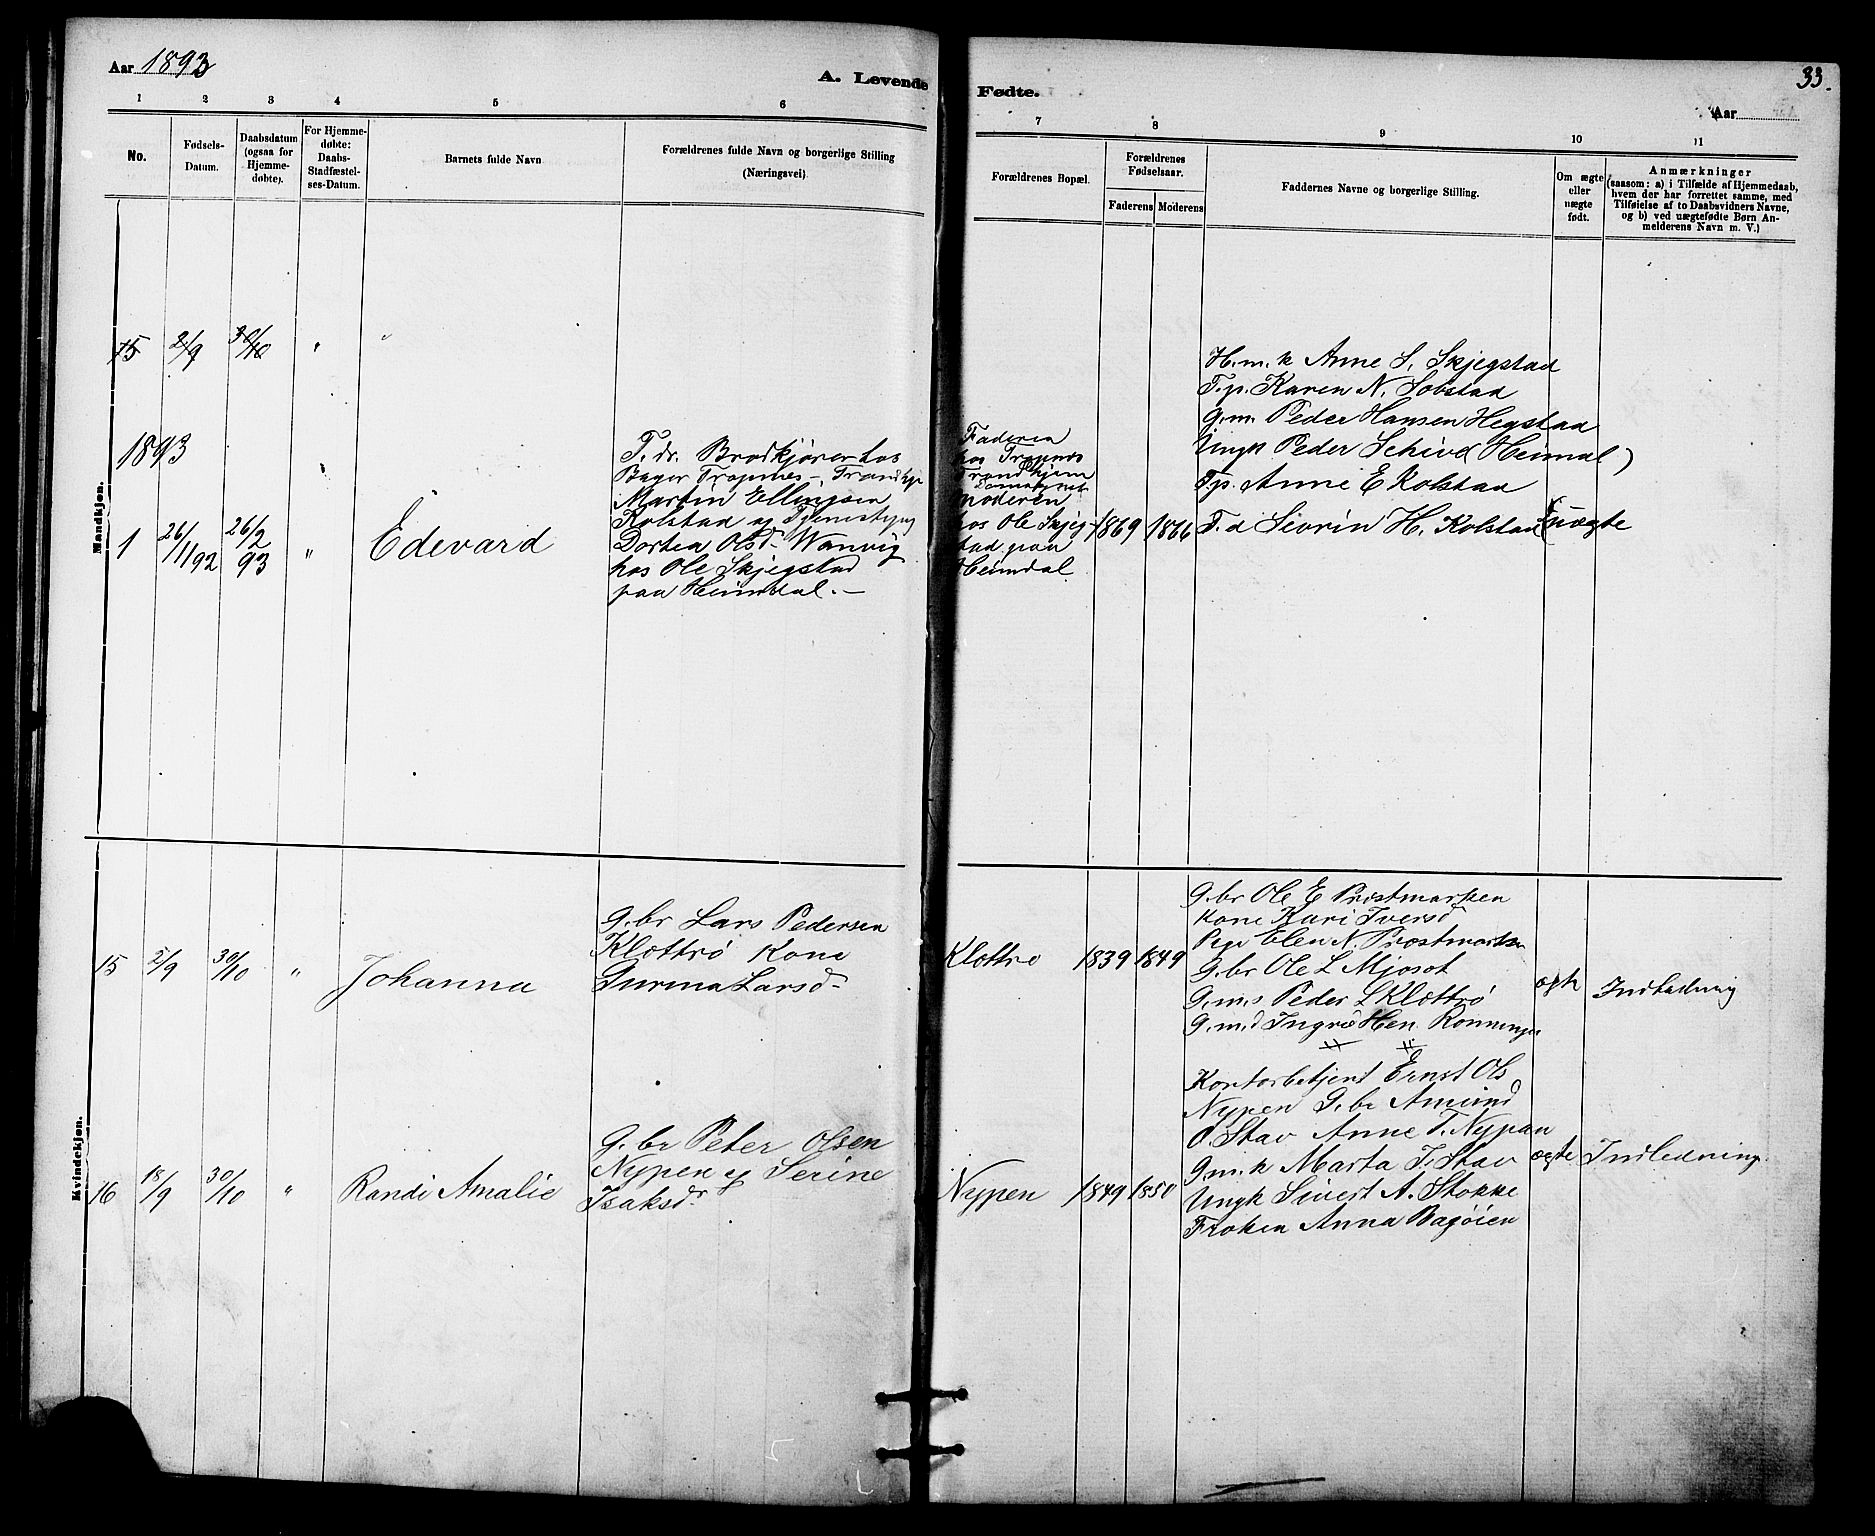 Aar 1893
A. Levende Fødte.
33.
Aar
1 2 3 4 5 6 7 8 9 10 11
No.
Fødsels-
Datum.
Daabsdatum
(ogsaa for
Hjemme-
døbte).
For Hjemme-
døbte:
Daabs-
Stadfæstel-
ses-Datum.
Barnets fulde Navn
Forældrenes fulde Navn og borgerlige Stilling
(Næringsvei)
Forældrenes Bopæl.
Forældrenes
Fødselsaar.
Faderens Moderens
Faddernes Navne og borgerlige Stilling.
Om ægte
eller
uægte
født.
Anmærkninger
(saasom: a) i Tilfælde af Hjemmedaab,
hvem der har forrettet samme, med
Tilføielse af to Daabsvidners Navne,
og b) ved uægtefødte Børn An-
melderens Navn m. V.)
Mandkjøn.
15 2/9 30/10 "
1893
1 26/11 92 26/2 93 "
Edevard
T. dr. Brødkjører hos
Bager Trapnes, Trondhjem
Martin Ellingsen
Kolstad og Tjenestepig
Dortea Olsd. Wanvig
hos Ole Skjegstad
paa Heimdal. –
Faderen
hos Trapnes
Trondhjem
Moderen
hos Ole Skjeg-
stad paa
Heimdal.
1869 1866
H. m. k Anne S. Skjegstad
T.p. Karen N. Sobstad
G.m. Peder Hansen Hegstad
Ungk Peder Schive (Heimdal)
T.p. Anne E Kolstad
T. d Sivrin H. Kolstad
uægte
Kvindekjøn.
15 2/9 30/10 "
Johanna
G.br Lars Pedersen
Klættrø Kone
Gurina Larsd.
Klættrø
1839 1849
G.br Ole E Prøstmarken
Kone Kari Iversd
Pige Elen N. Prøstmarken
G.br Ole L Mjøsot
G.m.s Peder L Klættrø
G.m.d Ingrid Hen. Rønningen
ægte
Indledning
16 18/9 30/10 "
Randi Amalie
G.br Peter Olsen
Nypen og Serine
Isaksd.
Nypen
1849 1850
Kontorbetjent Ernst Ols
Nypen G.br Amund
O Stav Anne T. Nypan
Gm.k Marta T. Stav
Ungk Sivert A. Stokke
Frøken Anna Bagøien
ægte
Indledning